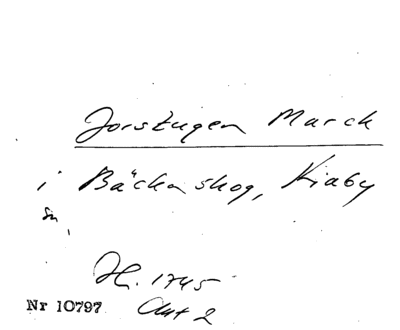 Jorstugen March
i Bäckaskog, Kiaby
sn,
H. 1745
Nr 10797 Akt 2